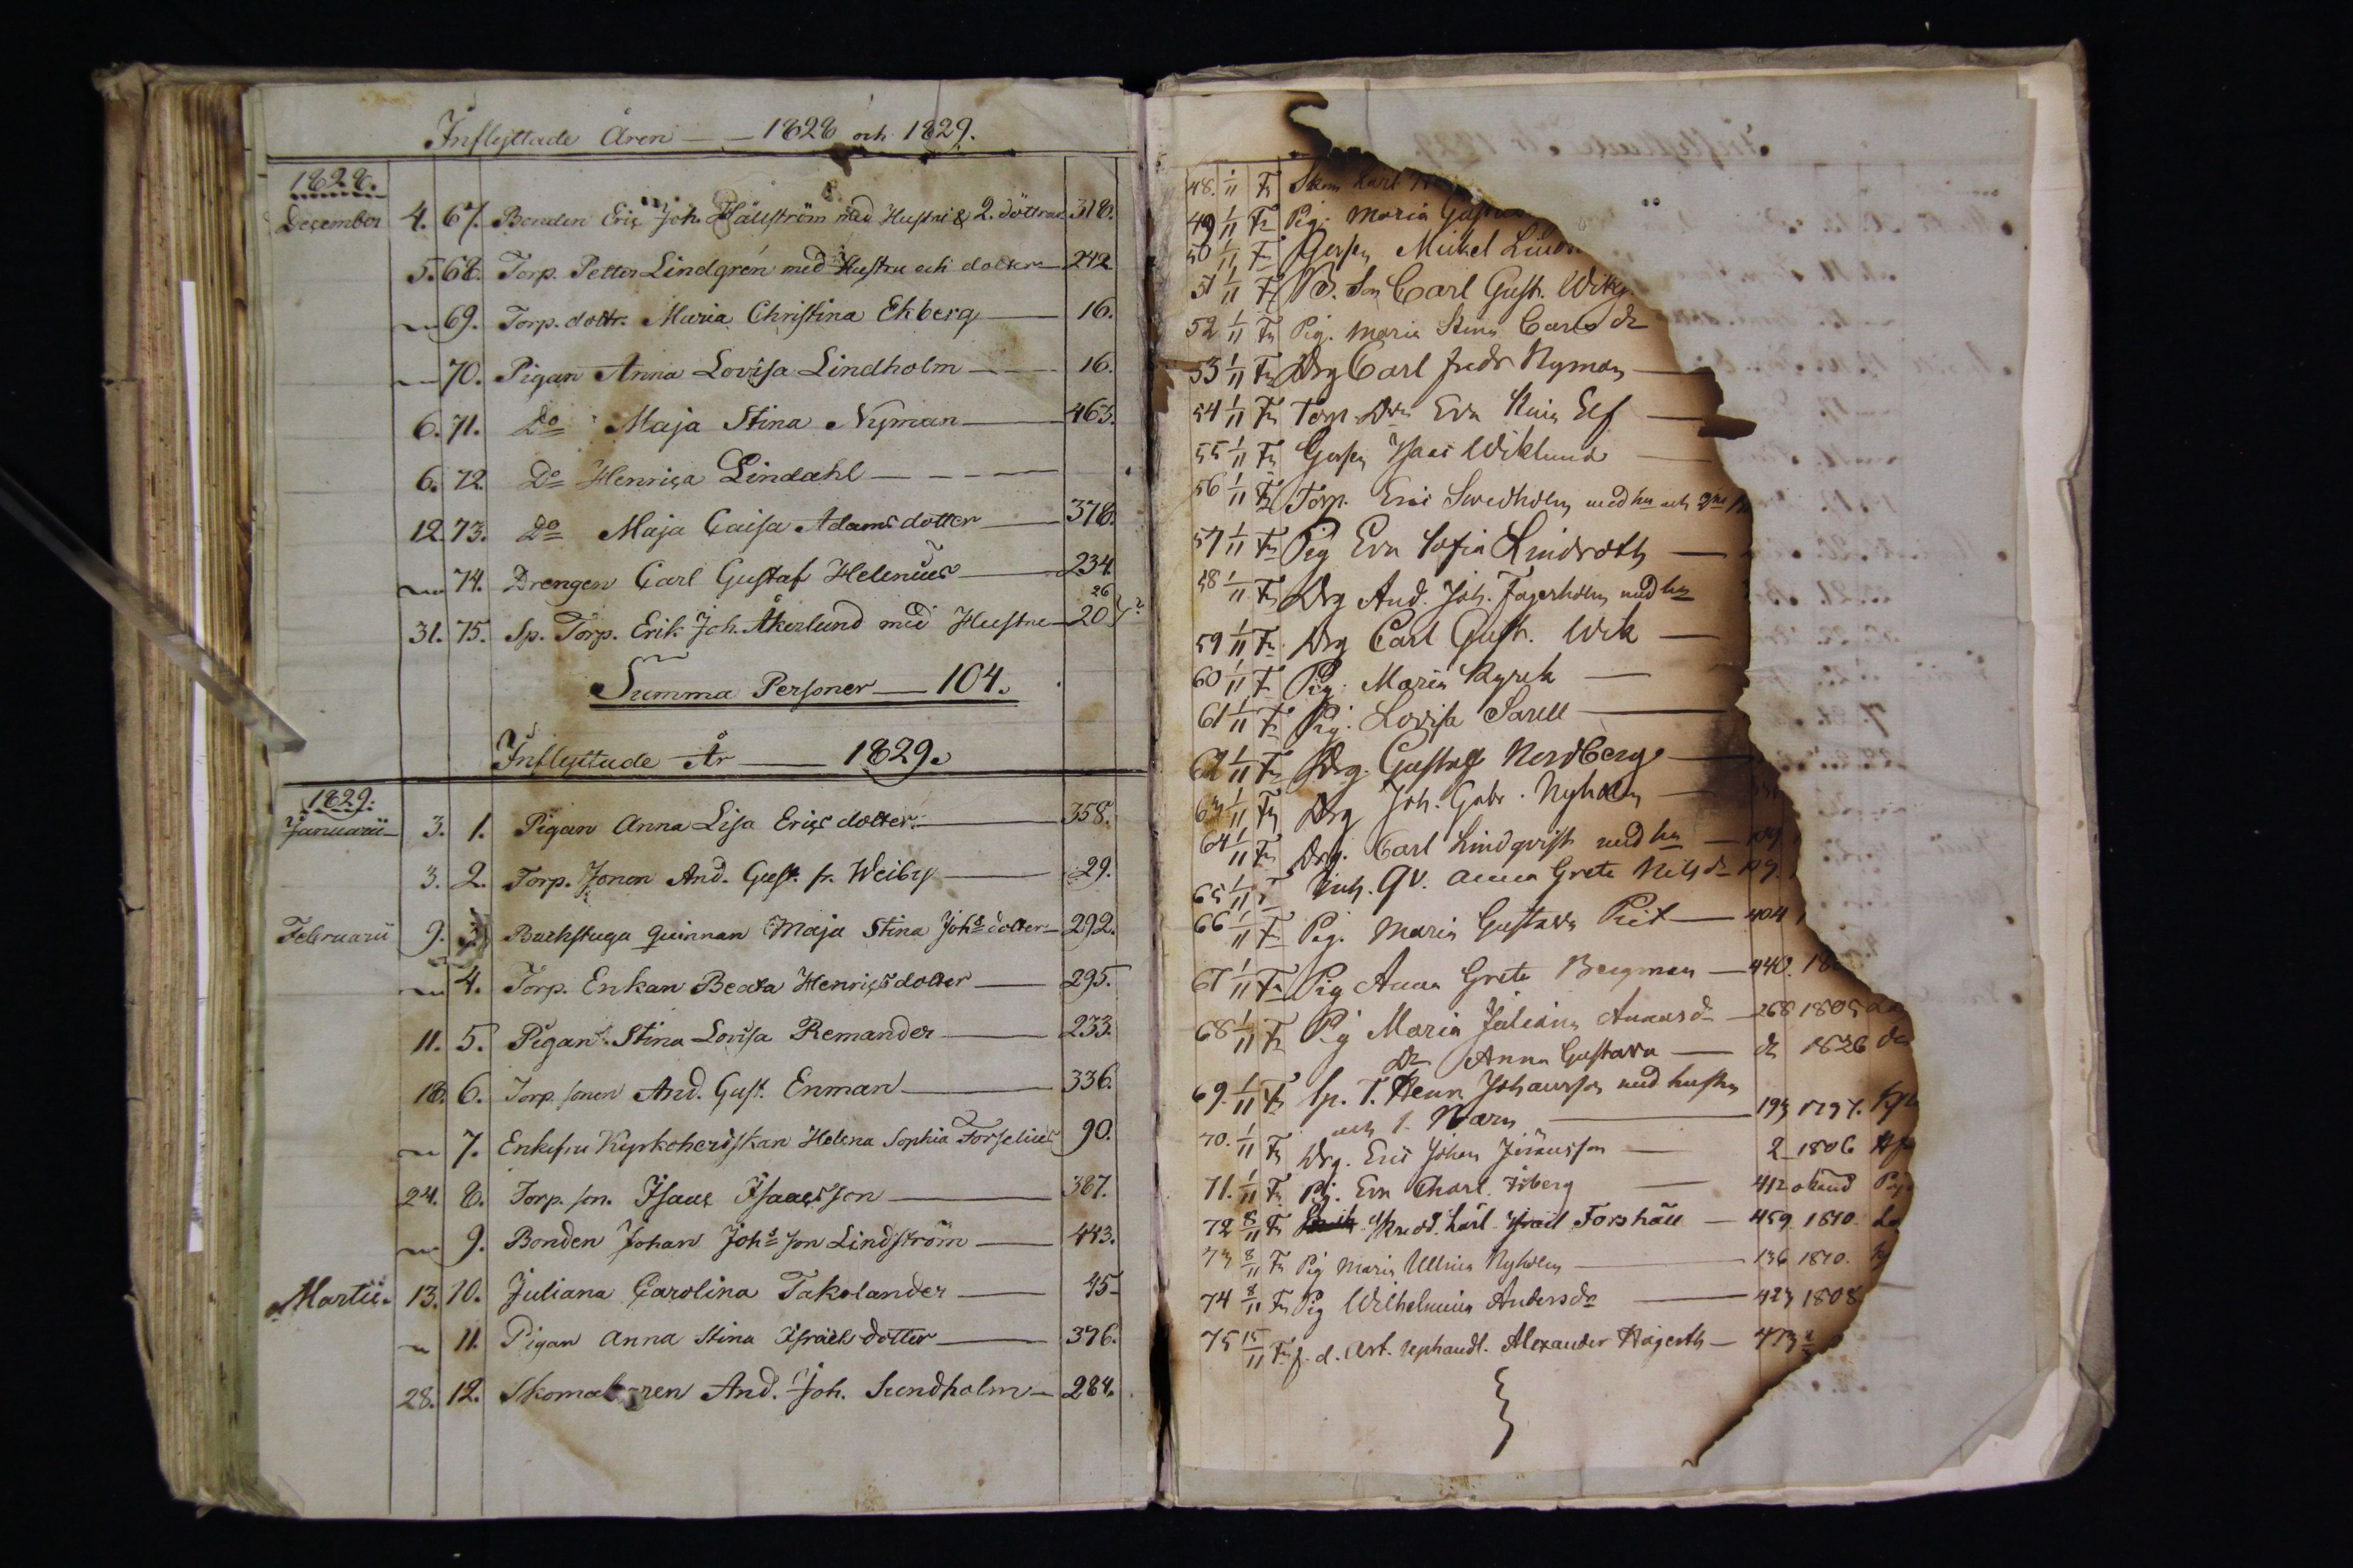 Inflyttade Åren — 1828 och 1829.
1828.
December 4. 67. Bonden Eric Joh. Hällström med Hustru & 2. döttrar 318.
5. 68. Torp. Petter Lindgrén med Hustru och dotter — 242
— 69. Torp. dottr. Maria Christina Ekberg — 16.
— 70. Pigan Anna Lovisa Lindholm — 16.
6. 71. Do Maja Stina Nyman — 463.
6. 72. Do Henrica Lindahl —
12. 73. Do Maja Caisa Adamsdotter — 378.
— 74. Drengen Carl Gustaf Helenius — 234.
31. 75. Sp. Torp. Erik Joh. Åkerlund med Hustru — 20 26
Summa Personer — 104.
Inflyttade År — 1829.
1829.
Januarii 3. 1. Pigan Anna Lisa Ericsdotter — 358.
3. 2. Torp. Sonen And. Gust. fr. Weiby — 29.
Februarii 9. Backstugu Quinnan Maja Stina Johs dotter — 292.
— 4. Torp. Enkan Beata Henricsdotter — 295.
11. 5. Pigan Stina Lovisa Remander — 233.
18. 6. Torp. sonen And. Gust. Enman — 336.
— 7. Enkefru Kyrkoherdskan Helena Sophia Forselius 90.
24. 8. Torp. son. Isaac Isaacsson — 387.
— 9. Bonden Johan Johs son Lindström — 443.
Martii. 13. 10. Juliana Carolina Takolander — 45
— 11. Pigan Anna Stina Israelsdotter — 376.
28. 12. Skomakaren And. Joh. Sundholm — 284.
48. 1/11 Fr Skom Carl
49 1/11 Fr Pig. Maria
50 1/11 Fr Gossen Mickel
51 1/11 Fr B. Son Carl Gust.
52 1/11 Fr Pig. Maria Stina Carls dr
53 1/11 Fr Drg Carl Fredr Nyman —
54 1/11 Fr Torp. Dr Eva Stina Elf —
55 1/11 Fr Gossen Isac Wiklund —
56 1/11 Fr Torp. Eric Swedholm med hu och
57 1/11 Fr Pig Eva Sofia Lindroth —
58 1/11 Fr Drg And. Joh. Fagerholm med hu
59 1/11 Fr Drg Carl Gust. Wik —
60 1/11 Fr Pig. Maria Kyrck —
61 1/11 Fr Pig. Lovisa Sarell —
62 1/11 Fr Drg. Gustaf Nordberg —
63 1/11 Fr Drg Joh. Gabr. Nyholm —
64 1/11 Fr Drg. Carl Lindqvist med hu —
65 1/11 Inh. Qv. Anna Greta Nils dr
66 1/11 Fr Pig. Maria Gustava — 404
67 1/11 Fr Pig Anna Greta Bergman — 440. 18
68 1/11 Fr Pig Maria Juliana Anders dr — 268 1805
Dr Anna Gustava — do 1826
69. 1/11 Fr Sp. T. Henr. Johansson med hustru
och 1. Barn — 193 1797.
70. 1/11 Fr Drg. Eric Johan Jöransson — 2 1806
71. 1/11 Fr Pig. Eva Charl. Isberg — 412 okänd
72 8/11 Fr Skredd. Carl Israel Forshäll — 459 1810.
73 8/11 Fr Pig Maria Ullrica Nyholm — 136 1810.
74 8/11 Fr Pig Wilhelmina Anders dr — 423 1808
75 15/11 Fr f. d. Art. Alexander Hagerth — 473